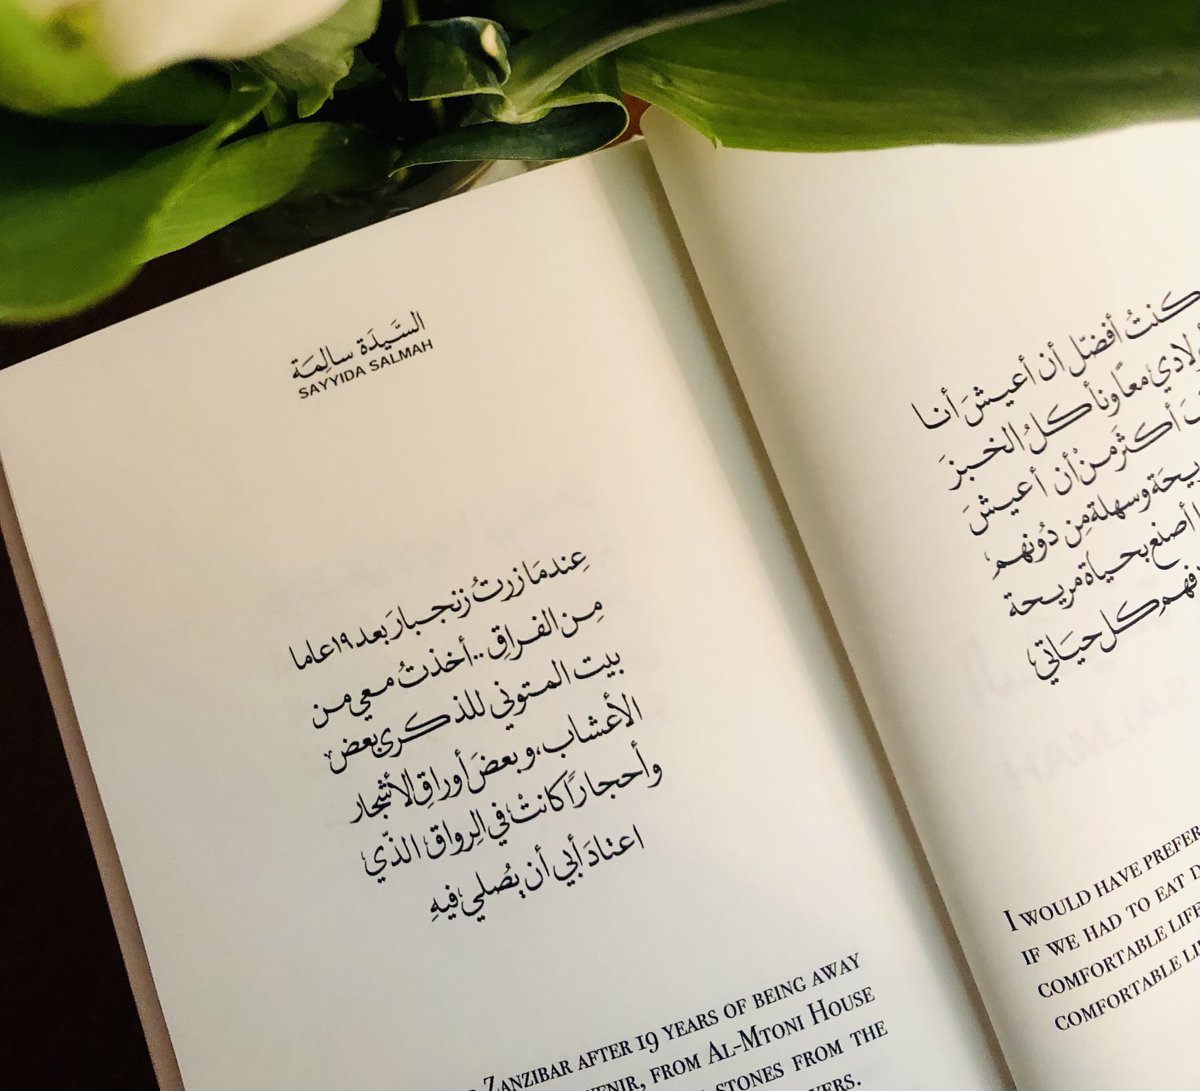 السَّيدَة سالِمَة
SAYYIDA SALMAH
عِندمَا زرتُ زنجبارَ بعد ١٩عاما
مِن الفراقِ .. أخذتُ معي من
بيت المتوني للذكرى بعض
الأعشاب، وبعضَ أوراقِ الأشجار
وأحجاراً كانتْ في الِرواق الذّي
اعتادَ أبي أن يُصلي فيهِ
ZANZIBAR AFTER 19 YEARS OF BEING AWAY
FROM AL-MTONI HOUSE
STONES FROM THE
كنتُ أفضّل أن أعيشَ أنا
معًا ونأكلُ الخبزَ
أكثرَ منْ أن أعيشَ
وسهلة مِن دُونهم
أصنع بحياة مريحة
كل حيَاتي
I WOULD HAVE PREFER
IF WE HAD TO EAT D
COMFORTABLE LIFE
COMFORTABLE LI